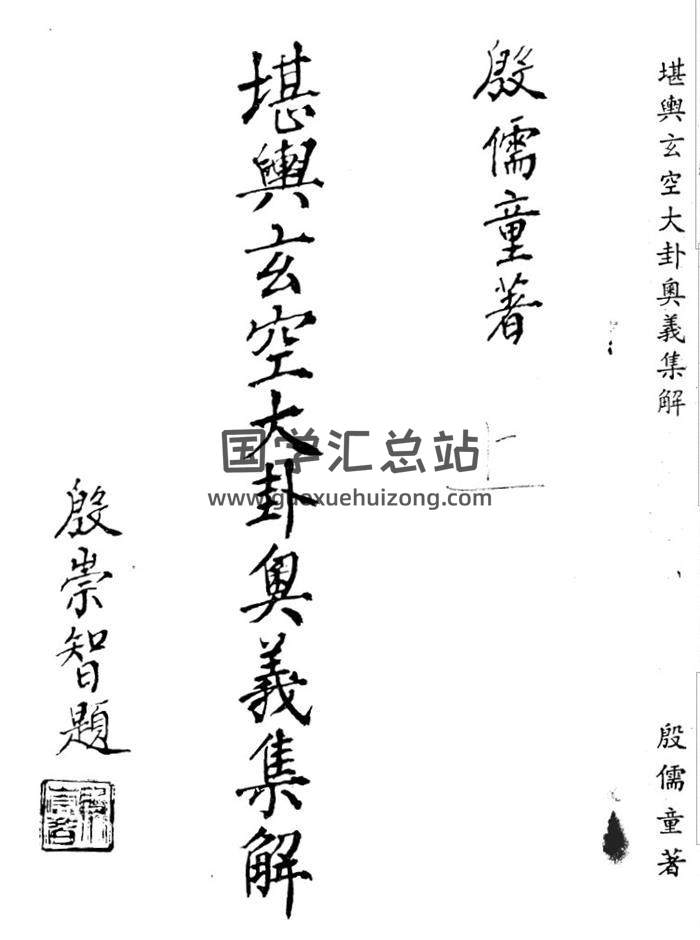 堪輿玄空大卦奧義集解
殷儒童著
殷儒童著
上
堪輿玄空大卦奧義集解
国学汇总站
www.guoxuehuizong.com
殷崇智題